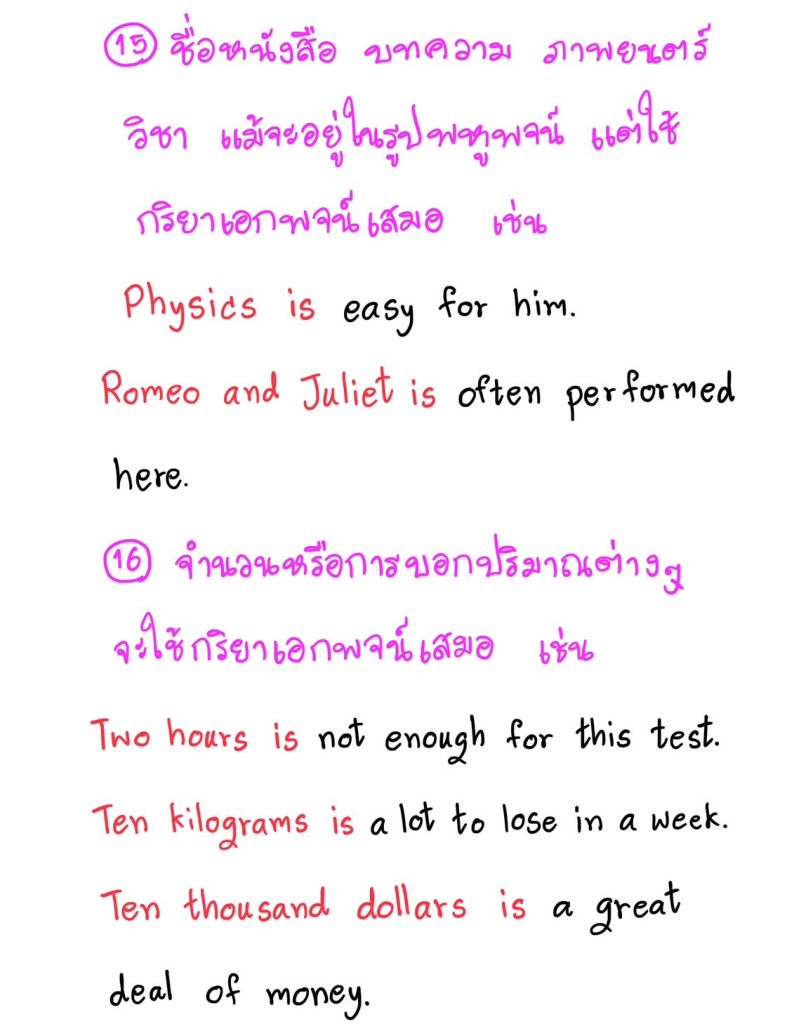 15 ชื่อหนังสือ บทความ ภาพยนตร์
วิชา แม้จะอยู่ในรูปพหูพจน์ แต่ใช้
กริยาเอกพจน์เสมอ เช่น
Physics is easy for him.
Romeo and Juliet is often performed
here.
16 จำนวนหรือการบอกปริมาณต่างๆ
จะใช้กริยาเอกพจน์เสมอ เช่น
Two hours is not enough for this test.
Ten kilograms is a lot to lose in a week.
Ten thousand dollars is a great
deal of money.